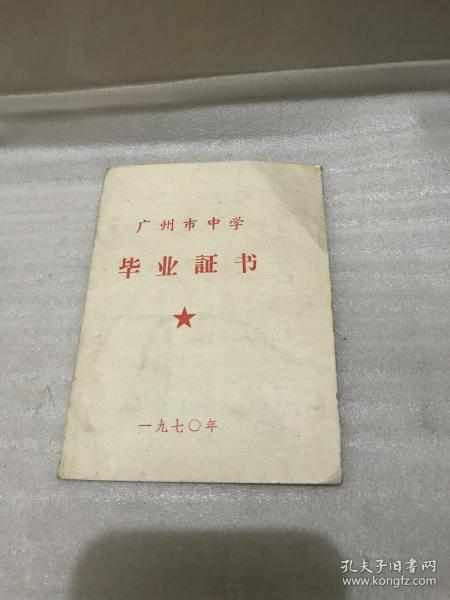 广州市中学
毕业証书
一九七〇年
孔夫子旧书网
www.kongfz.com